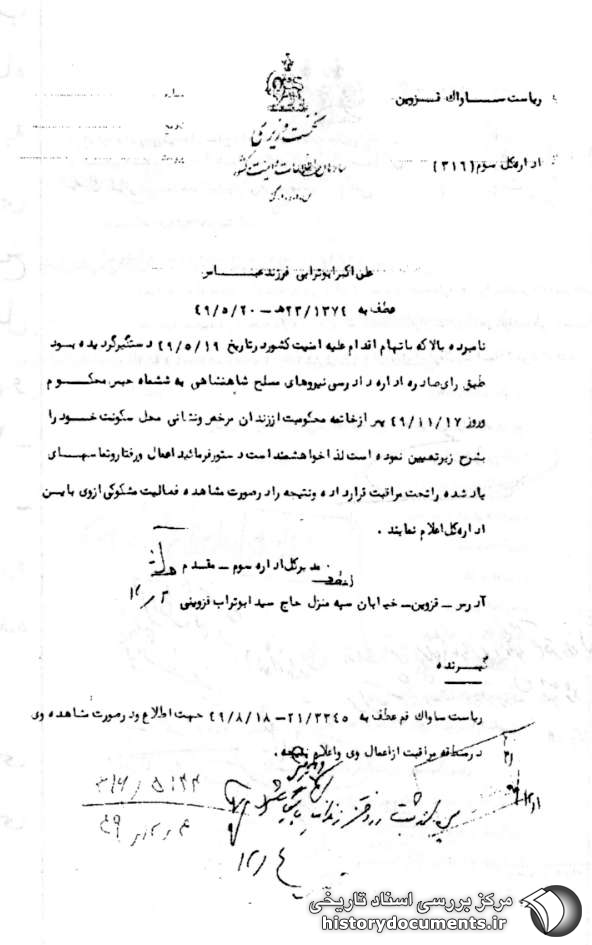 ریاست ســـــاواک قــزوین
شماره
نخست وزیری
تاریخ
سازمان اطلاعات و امنیت کشور
اداره کل سوم (۳۱۶)
پیوست
س.ا.و.ا.ک
علی اکبر ابوترابی فرزند عبـــاس
عطف به ۲۳/۱۳۷۴هـ - ۴۹/۵/۲۰
نامبرده بالا که باتهام اقدام علیه امنیت کشور در تاریخ ۴۹/۵/۱۹ دستگیر گردیده بــود
طبق رای صادره اداره دادرسی نیروهای مسلح شاهنشاهی به ششماه حبس محکـــوم
وروز ۴۹/۱۱/۱۷ پس از خاتمه محکومیت از زندان مرخص و نشانی محل سکونت خــود را
بشرح زیر تعیین نموده است لذا خواهشمند است دستور فرمائید اعمال و رفتار و تماسهــای
یاد شده را تحت مراقبت قرار داده و نتیجه را در صورت مشاهده فعالیت مشکوکی از وی باین
اداره کل اعلام نمایند .
مدیر کل اداره سوم - مقدم
آدرس - قزوین - خیابان سپه منزل حاج سید ابوتراب قزوینی
گیـــرنده
ریاست ساواک قم عطف به ۲۱/۳۳۴۵ - ۴۹/۸/۱۸ جهت اطلاع و در صورت مشاهده وی
در منطقه مراقبت از اعمال وی و اعلام نتیجه .
۳۱۶/۵۱۴۴
مرکز بررسی اسناد تاریخی
historydocuments.ir